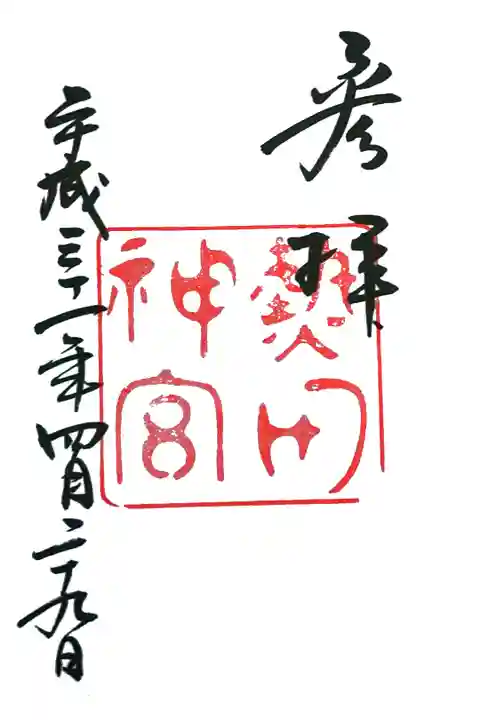 参拝
熱田
神宮
平成三十一年四月二十九日